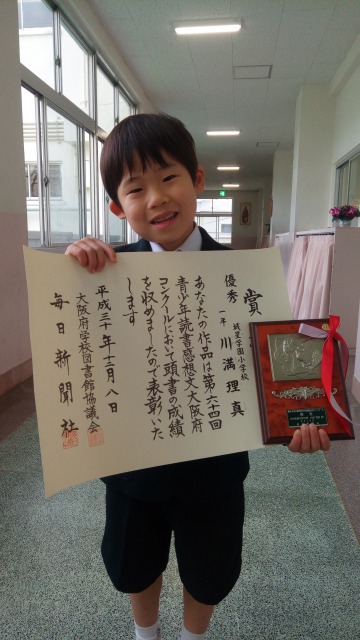 賞
優秀
城星学園小学校
一年 川満理真
あなたの作品は第六十四回
青少年読書感想文大阪府
コンクールにおいて頭書の成績
を収めましたので表彰いた
します
平成三十年十二月八日
大阪府学校図書館協議会
毎日新聞社